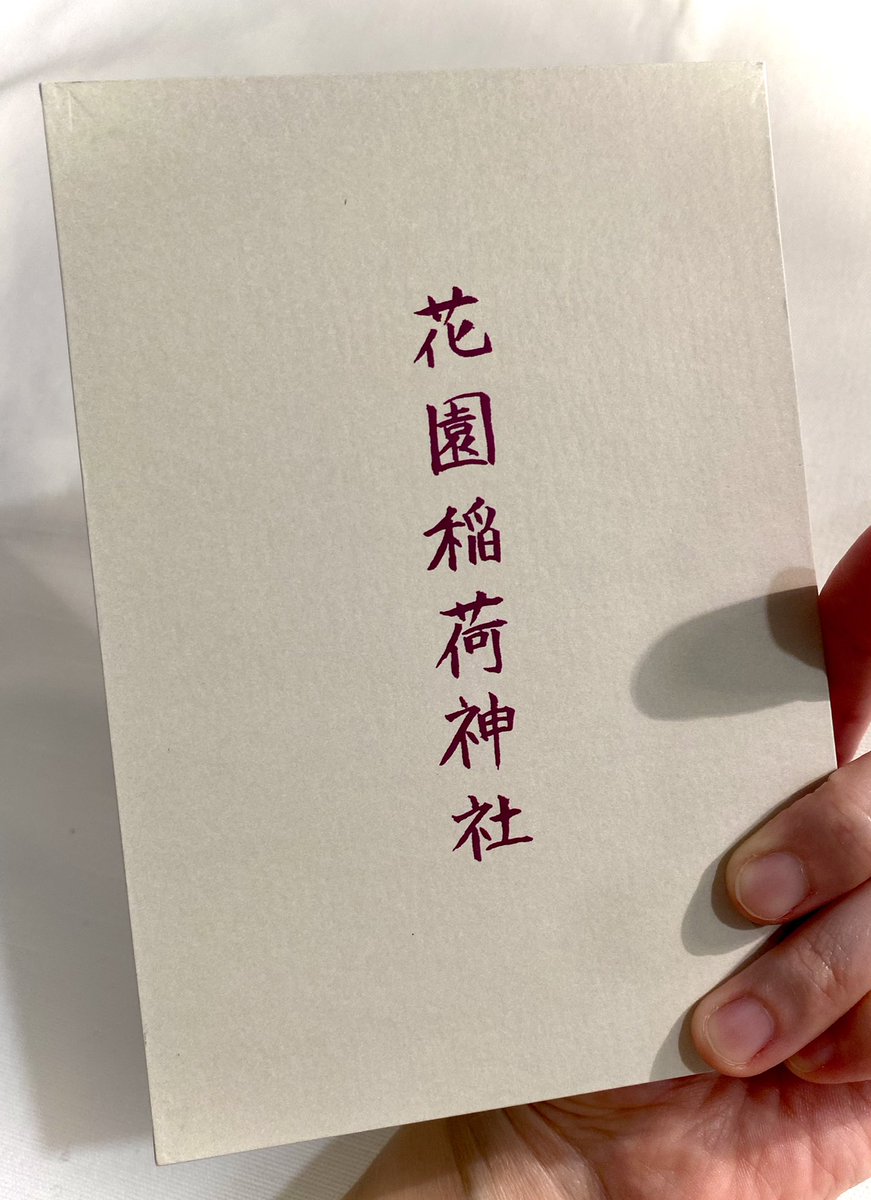 花園稲荷神社